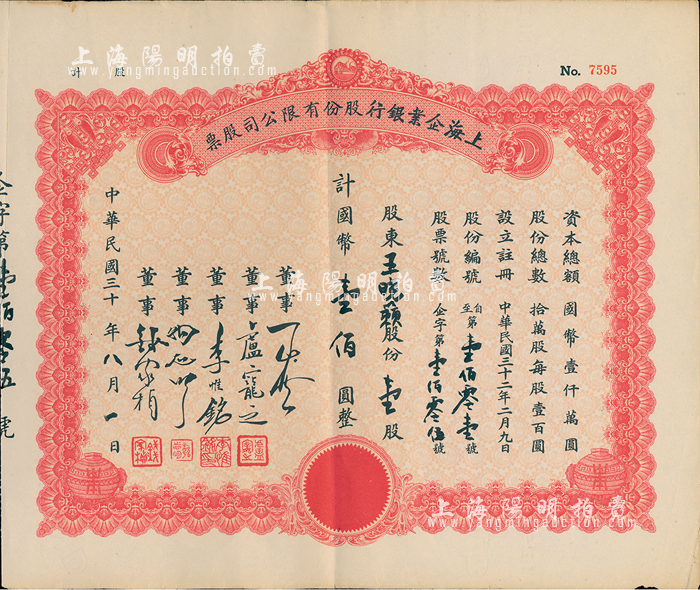 上海陽明拍賣
www.yangmingauction.com
計 股
No. 7595
上海企業銀行股份有限公司股票
資本總額 國幣壹仟萬圓
股份總數 拾萬股每股壹百圓
設立註冊 中華民國三十二年二月九日
股份編號 自至第壹佰零壹號
股票號數 企字第壹佰零伍號
股東王曉籟股份壹股
計國幣壹佰圓整
董事
董事 盧寵之
董事 李惟銘
董事
董事
中華民國三十 年八月一日
企字第壹佰零伍號
上海陽明拍賣
www.yangmingauction.com
上海陽明拍賣
www.yangmingauction.com